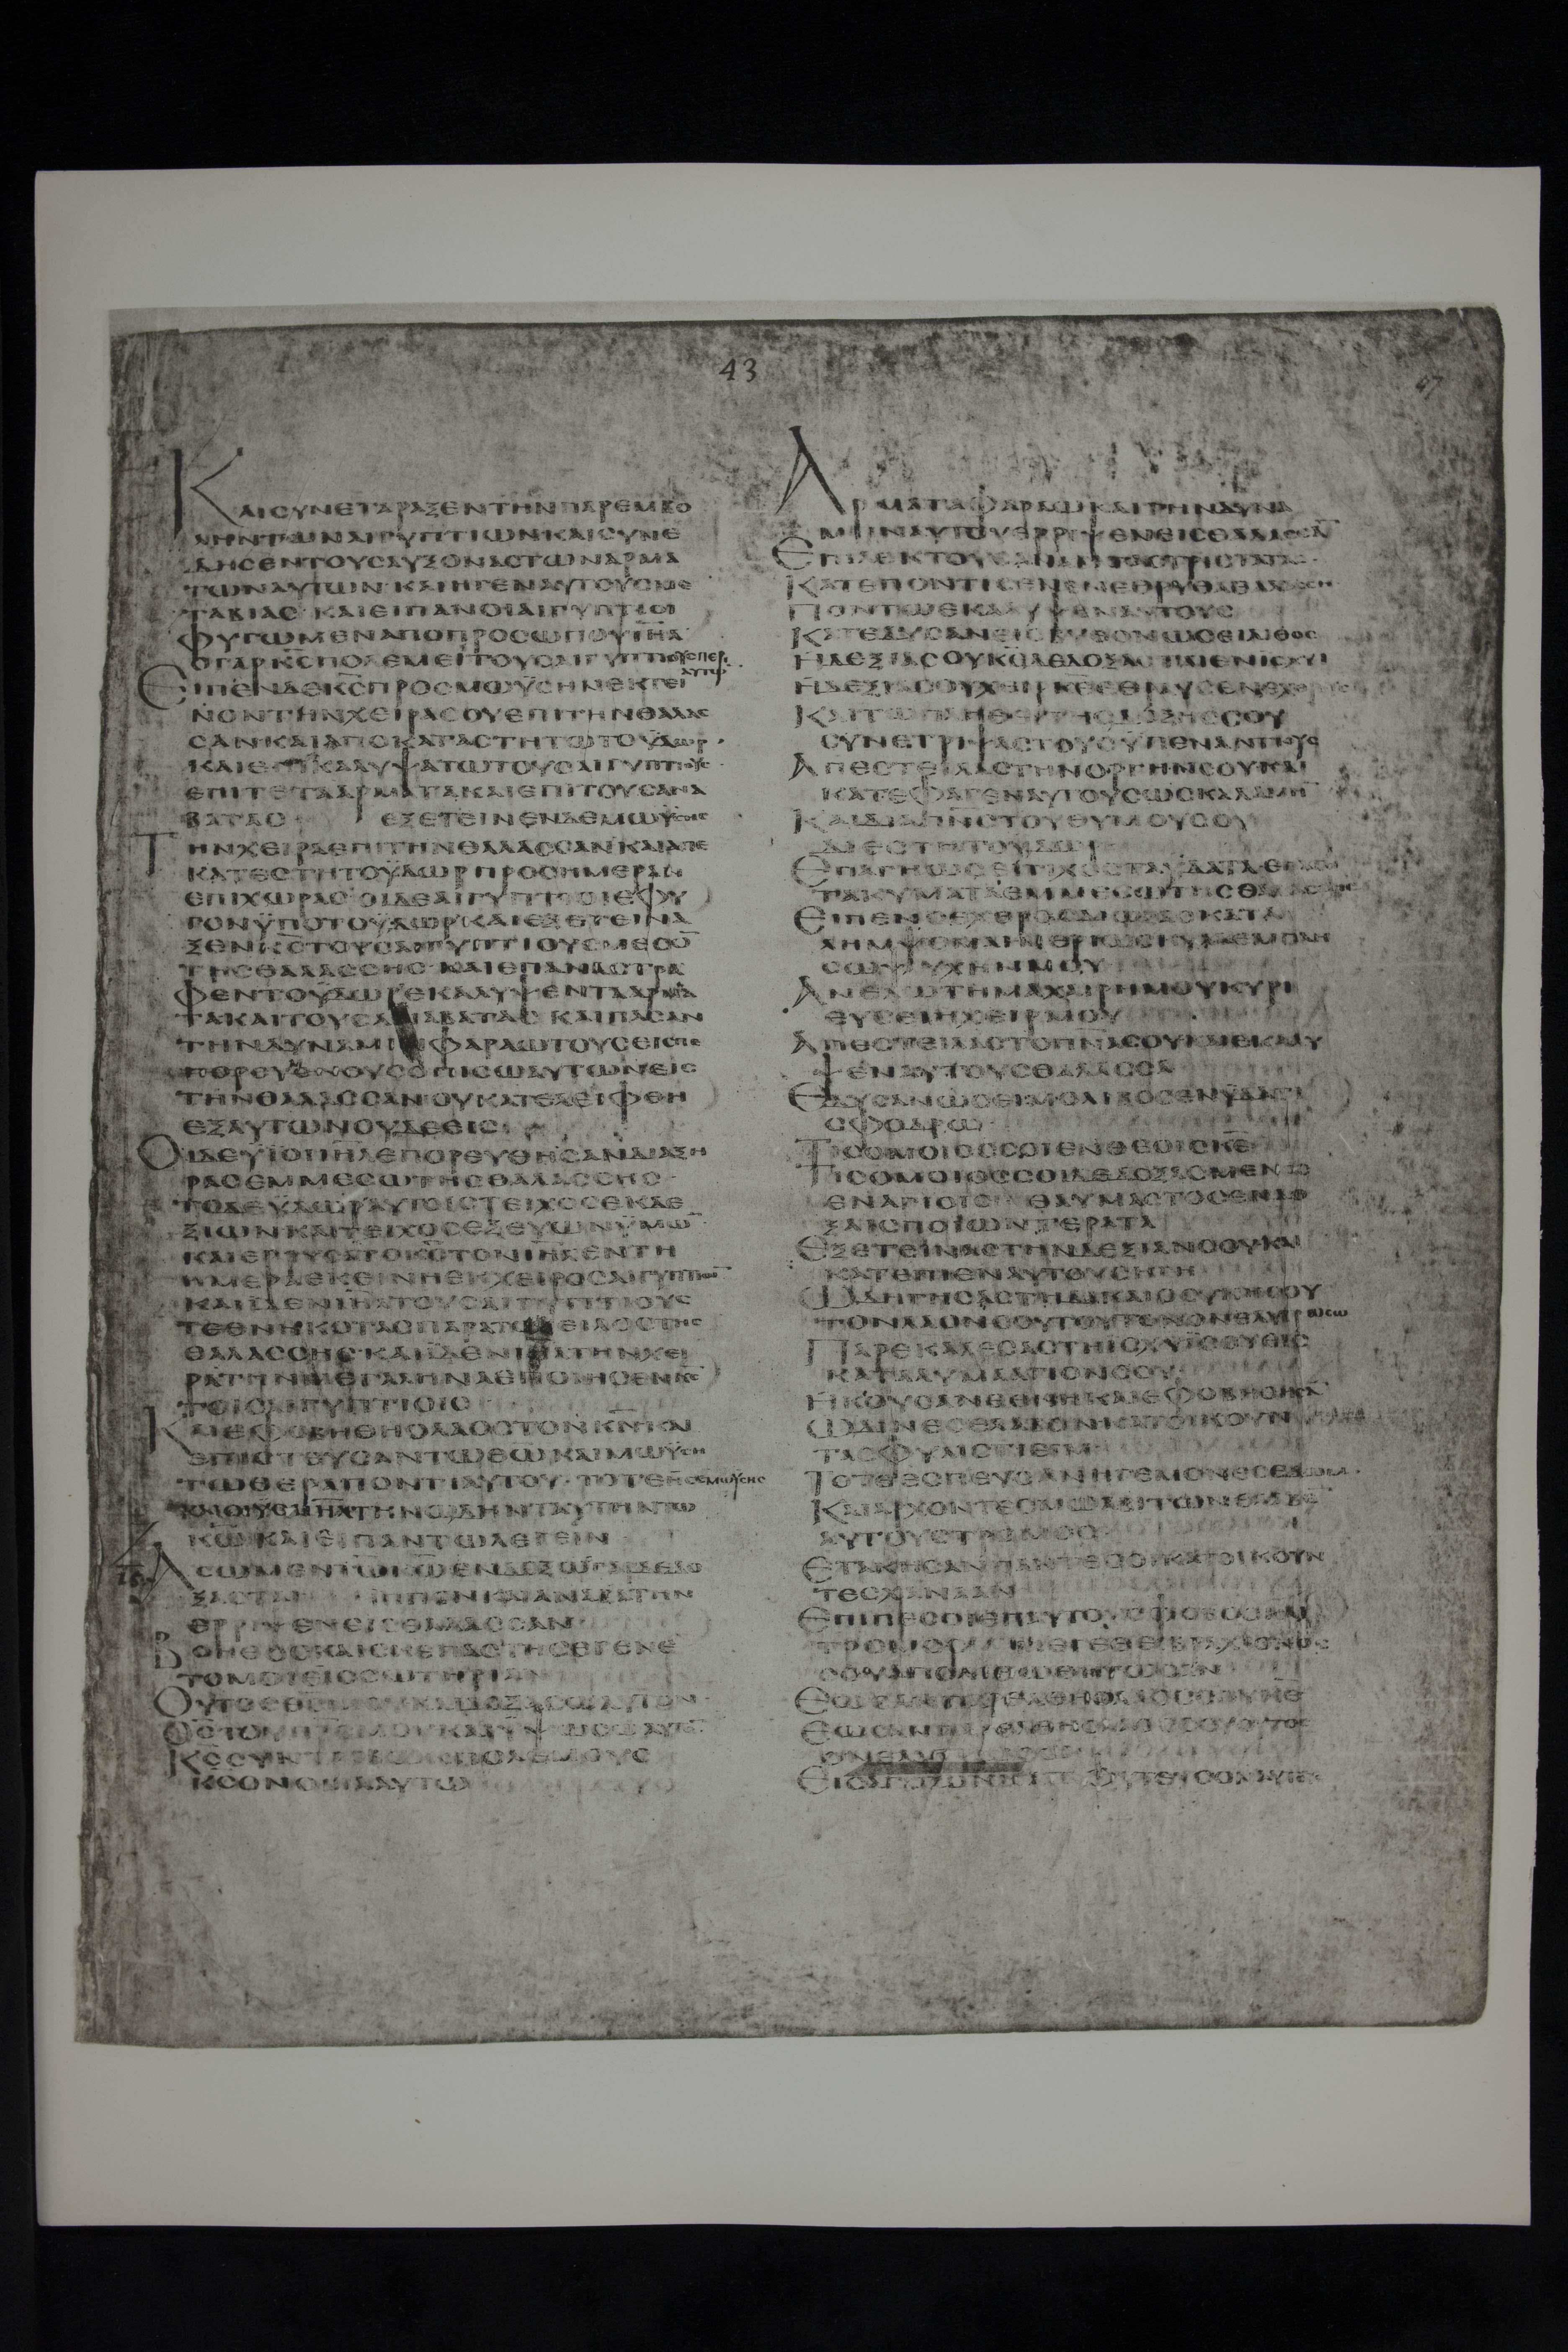 43
47
ΚΑΙϹΥΝΕΤΑΡΑΞΕΝΤΗΝΠΑΡΕΜΒΟ
ΛΗΝΤΩΝΑΙΓΥΠΤΙΩΝΚΑΙϹΥΝΕ
ΔΗϹΕΝΤΟΥϹΑΥΞΟΝΑϹΤΩΝΑΡΜΑ
ΤΩΝΑΥΤΩΝ ΚΑΙΗΓΕΝΑΥΤΟΥϹΜΕ
ΤΑΒΙΑϹ ΚΑΙΕΙΠΑΝΟΙΑΙΓΥΠΤΙΟΙ
ΦΥΓΩΜΕΝΑΠΟΠΡΟϹΩΠΟΥΙ̅Η̅Λ̅
ΟΓΑΡΚ̅Ϲ̅ΠΟΛΕΜΕΙΤΟΥϹΑΙΓΥΠΤΙΟΥϹΠΕΡΙ
ΑΥΤΩ̅
ΕΙΠΕΝΔΕΚ̅Ϲ̅ΠΡΟϹΜΩΫϹΗΝΕΚΤΕΙ
ΝΟΝΤΗΝΧΕΙΡΑϹΟΥΕΠΙΤΗΝΘΑΛΑϹ
ϹΑΝΚΑΙΑΠΟΚΑΤΑϹΤΗΤΩΤΟΫΔΩΡ
ΚΑΙΕΠΙΚΑΛΥΨΑΤΩΤΟΥϹΑΙΓΥΠΤΙΟΥϹ
ΕΠΙΤΕΤΑΑΡΜΑΤΑΚΑΙΕΠΙΤΟΥϹΑΝΑ
ΒΑΤΑϹ ΕΞΕΤΕΙΝΕΝΔΕΜΩΫϹΗϹ
ΤΗΝΧΕΙΡΑΕΠΙΤΗΝΘΑΛΑϹϹΑΝΚΑΙΑΠΕ
ΚΑΤΕϹΤΗΤΟΫΔΩΡΠΡΟϹΗΜΕΡΑΝ
ΕΠΙΧΩΡΑϹ ΟΙΔΕΑΙΓΥΠΤΙΟΙΕΦΥ
ΓΟΝΫΠΟΤΟΫΔΩΡΚΑΙΕΞΕΤΕΙΝΑ
ΞΕΝΚ̅Ϲ̅ΤΟΥϹΑΙΓΥΠΤΙΟΥϹΜΕϹΟ̅
ΤΗϹΘΑΛΑϹϹΗϹ ΚΑΙΕΠΑΝΑϹΤΡΑ
ΦΕΝΤΟΫΔΩΡΕΚΑΛΥΨΕΝΤΑΑΡΜΑ
ΤΑΚΑΙΤΟΥϹΑΝΑΒΑΤΑϹ ΚΑΙΠΑϹΑΝ
ΤΗΝΔΥΝΑΜΙΝΦΑΡΑΩΤΟΥϹΕΙϹΠΕ
ΠΟΡΕΥΜΕΝΟΥϹΟΠΙϹΩΑΥΤΩΝΕΙϹ
ΤΗΝΘΑΛΑϹϹΑΝ ΟΥΚΑΤΕΛΕΙΦΘΗ
ΕΞΑΥΤΩΝΟΥΔΕΕΙϹ
ΟΙΔΕΫΙΟΙΙ̅Η̅Λ̅ΕΠΟΡΕΥΘΗϹΑΝΔΙΑΞΗ
ΡΑϹΕΜΜΕϹΩΤΗϹΘΑΛΑϹϹΗϹ
ΤΟΔΕΫΔΩΡΑΥΤΟΙϹΤΕΙΧΟϹΕΚΔΕ
ΞΙΩΝΚΑΙΤΕΙΧΟϹΕΞΕΥΩΝΥΜΩ̅
ΚΑΙΕΡΡΥϹΑΤΟΚ̅Ϲ̅ΤΟΝΙ̅Η̅Λ̅ΕΝΤΗ
ΗΜΕΡΑΕΚΕΙΝΗΕΚΧΕΙΡΟϹΑΙΓΥΠΤΙΩ̅
ΚΑΙΪΔΕΝΙ̅Η̅Λ̅ΤΟΥϹΑΙΓΥΠΤΙΟΥϹ
ΤΕΘΝΗΚΟΤΑϹΠΑΡΑΤΟΧΕΙΛΟϹΤΗϹ
ΘΑΛΑϹϹΗϹ ΚΑΙΪΔΕΝΙ̅Η̅Λ̅ΤΗΝΧΕΙ
ΡΑΤΗΝΜΕΓΑΛΗΝΑΕΠΟΙΗϹΕΝΚ̅Ϲ̅
ΤΟΙϹΑΙΓΥΠΤΙΟΙϹ
ΚΑΙΕΦΟΒΗΘΗΟΛΑΟϹΤΟΝΚ̅Ν̅ΚΑΙ
ΕΠΙϹΤΕΥϹΑΝΤΩΘ̅Ω̅ΚΑΙΜΩΫϹΗ
ΤΩΘΕΡΑΠΟΝΤΙΑΥΤΟΥ ΤΟΤΕΗϹΕΜΩΫϹΗϹ
ΚΑΙΟΙΥΙΟΙΙ̅Η̅Λ̅ΤΗΝΩΔΗΝΤΑΥΤΗΝΤΩ
Κ̅Ω̅ΚΑΙΕΙΠΑΝΤΩΛΕΓΕΙΝ
ΑϹΩΜΕΝΤΩΚ̅Ω̅ΕΝΔΟΞΩϹΓΑΡΔΕΔΟ
ΞΑϹΤΑΙ ΪΠΠΟΝΚΑΙΑΝΑΒΑΤΗΝ
ΕΡΡΙΨΕΝΕΙϹΘΑΛΑϹϹΑΝ
ΒΟΗΘΟϹΚΑΙϹΚΕΠΑϹΤΗϹΕΓΕΝΕ
ΤΟΜΟΙΕΙϹϹΩΤΗΡΙΑΝ
ΟΥΤΟϹΘ̅Ϲ̅ΜΟΥΚΑΙΔΟΞΑϹΩΑΥΤΟΝ
Θ̅Ϲ̅ΤΟΥΠ̅Ρ̅Ϲ̅ΜΟΥΚΑΙΫΨΩϹΩΑΥΤΟ̅
Κ̅Ϲ̅ϹΥΝΤΡΙΒΩΝΠΟΛΕΜΟΥϹ
Κ̅Ϲ̅ΟΝΟΜΑΑΥΤΩ
ΑΡΜΑΤΑΦΑΡΑΩΚΑΙΤΗΝΔΥΝΑ
ΜΙΝΑΥΤΟΥΕΡΡΙΨΕΝΕΙϹΘΑΛΑϹϹΑ̅
ΕΠΙΛΕΚΤΟΥϹΑΝΑΒΑΤΑϹΤΡΙϹΤΑΤΑϹ
ΚΑΤΕΠΟΝΤΙϹΕΝΕΝΕΡΥΘΡΑΘΑΛΑϹϹΗ
ΠΟΝΤΩΕΚΑΛΥΨΕΝΑΥΤΟΥϹ
ΚΑΤΕΔΥϹΑΝΕΙϹΒΥΘΟΝΩϹΕΙΛΙΘΟϹ
ΗΔΕΞΙΑϹΟΥΚ̅Ε̅ΔΕΔΟΞΑϹΤΑΙΕΝΙϹΧΥΙ
ΗΔΕΞΙΑϹΟΥΧΕΙΡΚ̅Ε̅ΕΘΡΑΥϹΕΝΕΧΘΡΟΥϹ
ΚΑΙΤΩΠΛΗΘΕΙΤΗϹΔΟΞΗϹϹΟΥ
ϹΥΝΕΤΡΙΨΑϹΤΟΥϹΫΠΕΝΑΝΤΙΟΥϹ
ΑΠΕϹΤΕΙΛΑϹΤΗΝΟΡΓΗΝϹΟΥΚΑΙ
ΚΑΤΕΦΑΓΕΝΑΥΤΟΥϹΩϹΚΑΛΑΜΗ̅
ΚΑΙΔΙΑΠ̅Ν̅Ϲ̅ΤΟΥΘΥΜΟΥϹΟΥ
ΔΙΕϹΤΗΤΟΫΔΩΡ
ΕΠΑΓΗΩϹΕΙΤΙΧΟϹΤΑΫΔΑΤΑΕΠΑΓΗ
ΤΑΚΥΜΑΤΑΕΜΜΕϹΩΤΗϹΘΑΛΑϹϹΗϹ
ΕΙΠΕΝΟΕΧΘΡΟϹΔΙΩΞΑϹΚΑΤΑ
ΛΗΜΨΟΜΑΙΜΕΡΙΩϹΚΥΛΑΕΜΠΛΗ
ϹΩΨΥΧΗΝΜΟΥ
ΑΝΕΛΩΤΗΜΑΧΑΙΡΗΜΟΥΚΥΡΙ
ΕΥϹΕΙΗΧΕΙΡΜΟΥ
ΑΠΕϹΤΕΙΛΑϹΤΟΠ̅Ν̅Α̅ϹΟΥΚΑΙΕΚΑΛΥ
ΨΕΝΑΥΤΟΥϹΘΑΛΑϹϹΑ
ΕΔΥϹΑΝΩϹΕΙΜΟΛΙΒΟϹΕΝΫΔΑΤΙ
ϹΦΟΔΡΩ
ΤΙϹΟΜΟΙΟϹϹΟΙΕΝΘΕΟΙϹΚ̅Ε̅
ΤΙϹΟΜΟΙΟϹϹΟΙΔΕΔΟΞΑϹΜΕΝΟϹ
ΕΝΑΓΙΟΙϹ ΘΑΥΜΑϹΤΟϹΕΝΔΟ
ΞΑΙϹΠΟΙΩΝΤΕΡΑΤΑ
ΕΞΕΤΕΙΝΑϹΤΗΝΔΕΞΙΑΝϹΟΥΚΑΙ
ΚΑΤΕΠΙΕΝΑΥΤΟΥϹΗΓΗ
ΩΔΗΓΗϹΑϹΤΗΔΙΚΑΙΟϹΥΝΗϹΟΥ
ΤΟΝΛΑΟΝϹΟΥΤΟΥΤΟΝΟΝΕΛΥΤΡΩϹΩ
ΠΑΡΕΚΑΛΕϹΑϹΤΗΪϹΧΥΪϹΟΥΕΙϹ
ΚΑΤΑΛΥΜΑΑΓΙΟΝϹΟΥ
ΗΚΟΥϹΑΝΕΘΝΗΚΑΙΕΦΟΒΗΘΗϹΑ̅
ΩΔΙΝΕϹΕΛΑΒΟΝΚΑΤΟΙΚΟΥΝ
ΤΑϹΦΥΛΙϹΤΙΕΙΜ
ΤΟΤΕΕϹΠΕΥϹΑΝΗΓΕΜΟΝΕϹΕΔΩΜ
ΚΑΙΑΡΧΟΝΤΕϹΜΩΑΒΙΤΩΝΕΛΑΒΕ̅
ΑΥΤΟΥϹΤΡΟΜΟϹ
ΕΤΑΚΗϹΑΝΠΑΝΤΕϹΟΙΚΑΤΟΙΚΟΥΝ
ΤΕϹΧΑΝΑΑΝ
ΕΠΙΠΕϹΟΙΕΠΑΥΤΟΥϹΦΟΒΟϹΚΑΙ
ΤΡΟΜΟϹ
ϹΟΥΑΠΟΛΙΘΩΘΗΤΩϹΑΝ
ΕΩϹΑΝΠΑΡΕΛΘΗΟΛΑΟϹϹΟΥΚ̅Ε̅
ΕΩϹΑΝΠΑΡΕΛΘΗΟΛΑΟϹϹΟΥΟΥΤΟϹ